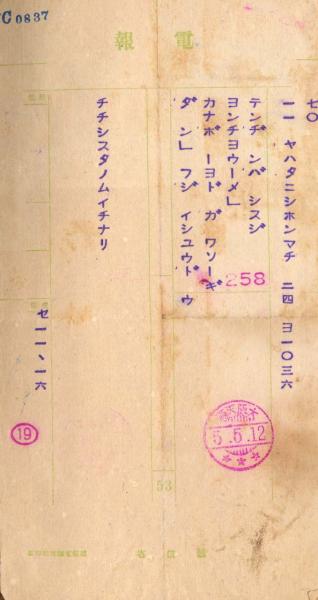 C0837
電報
七〇
一一 ヤハタニシホンマチ 二四 ヨ一〇三六
テンヂンバシスジ
ヨンチヨウーメ」
カナボーヨドガワソーギ
ダン」フジイシユウドウ
258
チチシスタノムイチナリ
セ一一、一六
19
5.5.12
53